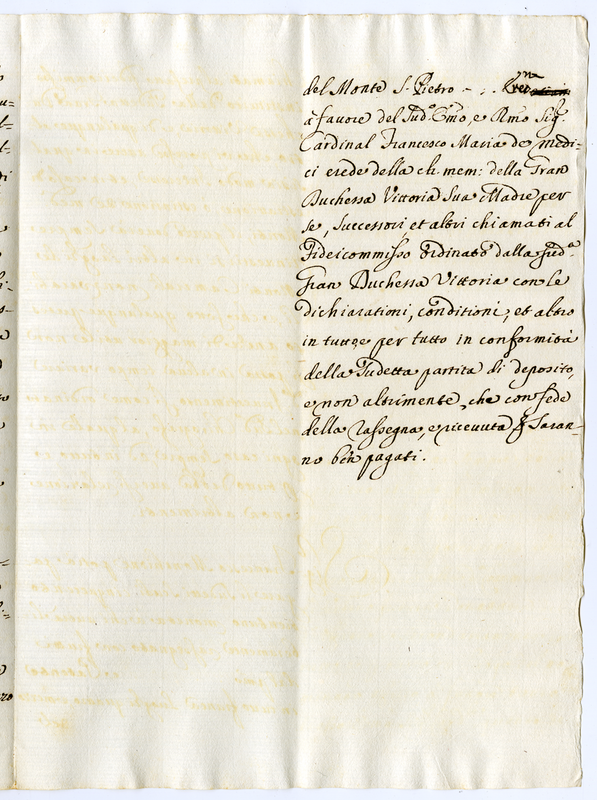 del Monte S. Pietro - ..
à favore del Sud.º Em̃o, e Rm̃o Sig.r
Cardinal Francesco Maria de Medi-
ci erede della ch: mem: della Gran
Duchessa Vittoria Sua Madre per
se, Successori, et altri chiamati al
Fideicommisso ordinato dalla sud.ª
Gran Duchessa Vittoria con le
dichiarationi, conditioni, et altro
in tutto, e per tutto in conformità
della Sudetta partita di deposito,
e non altrimente, che con fede
della rassegna, e ricevuta Saran-
no ben pagati.